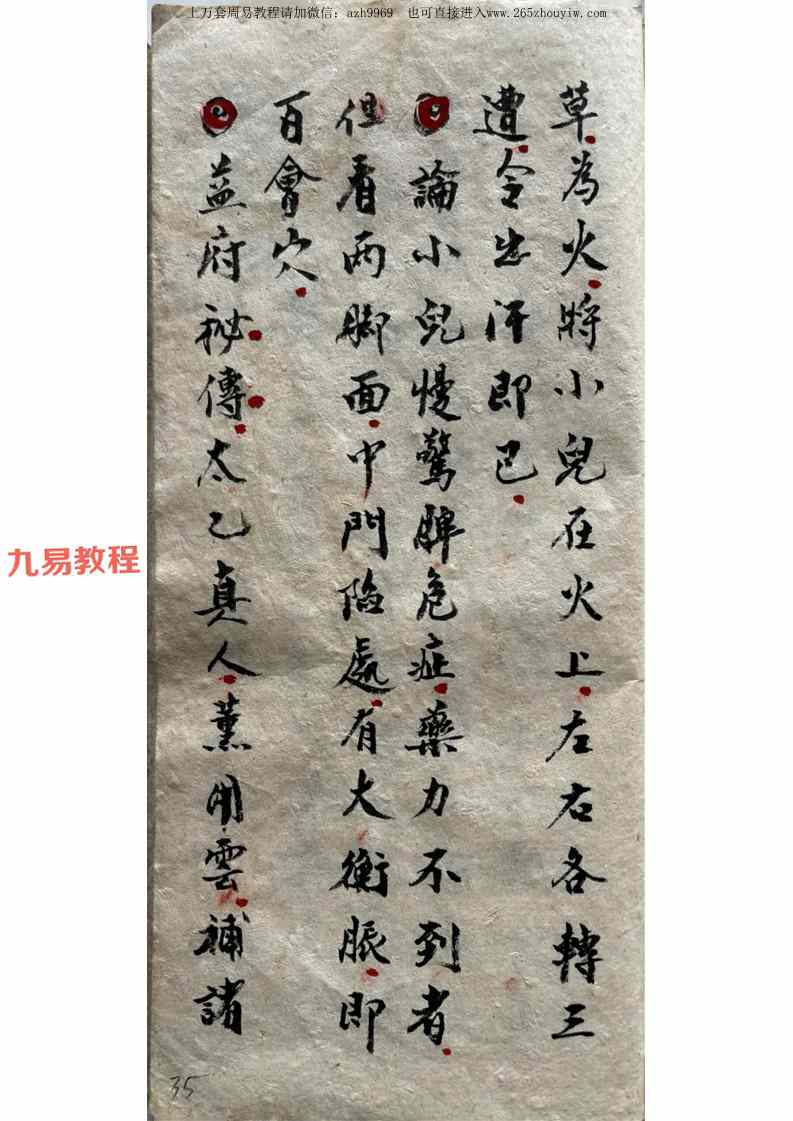 上万套周易教程请加微信：azh9969 也可直接进入www.265zhouyiw.com
草為火將小兒在火上左右各轉三
遭令出汗即已
論小兒慢驚脾危症藥力不到者
但看兩腳面中門陷處有大衝脈即
百會穴
益府秘傳太乙真人薰用雲補諸
九易教程
35